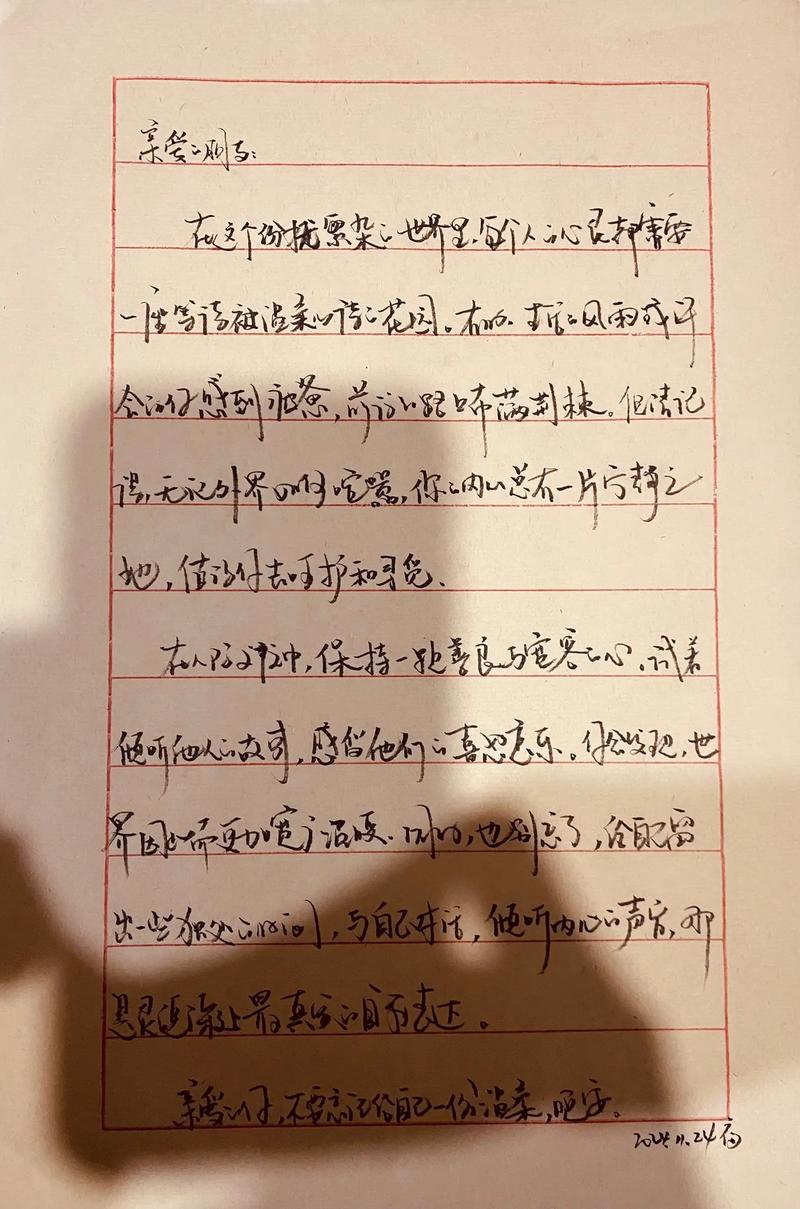 亲爱的朋友:
在这个纷扰繁杂的世界里,每个人的心灵都需要
一座等待被温柔以待的花园。有时,生活的风雨或许
会让你感到疲惫,前方的路布满荆棘。但请记
得,无论外界如何喧嚣,你的内心总有一片宁静之
地,值得你去呵护和寻觅。
在人际交往中,保持一颗善良与宽容之心,试着
倾听他人的故事,感悟他们的喜怒哀乐。你会发现,世
界因此而更加宽广温暖。同时,也别忘了,给自己留
出一些独处的时间,与自己对话,倾听内心的声音,那
是灵魂深处最真实的自我表达。
亲爱的你,不要忘记给自己一份温柔,晚安。
2024.11.24